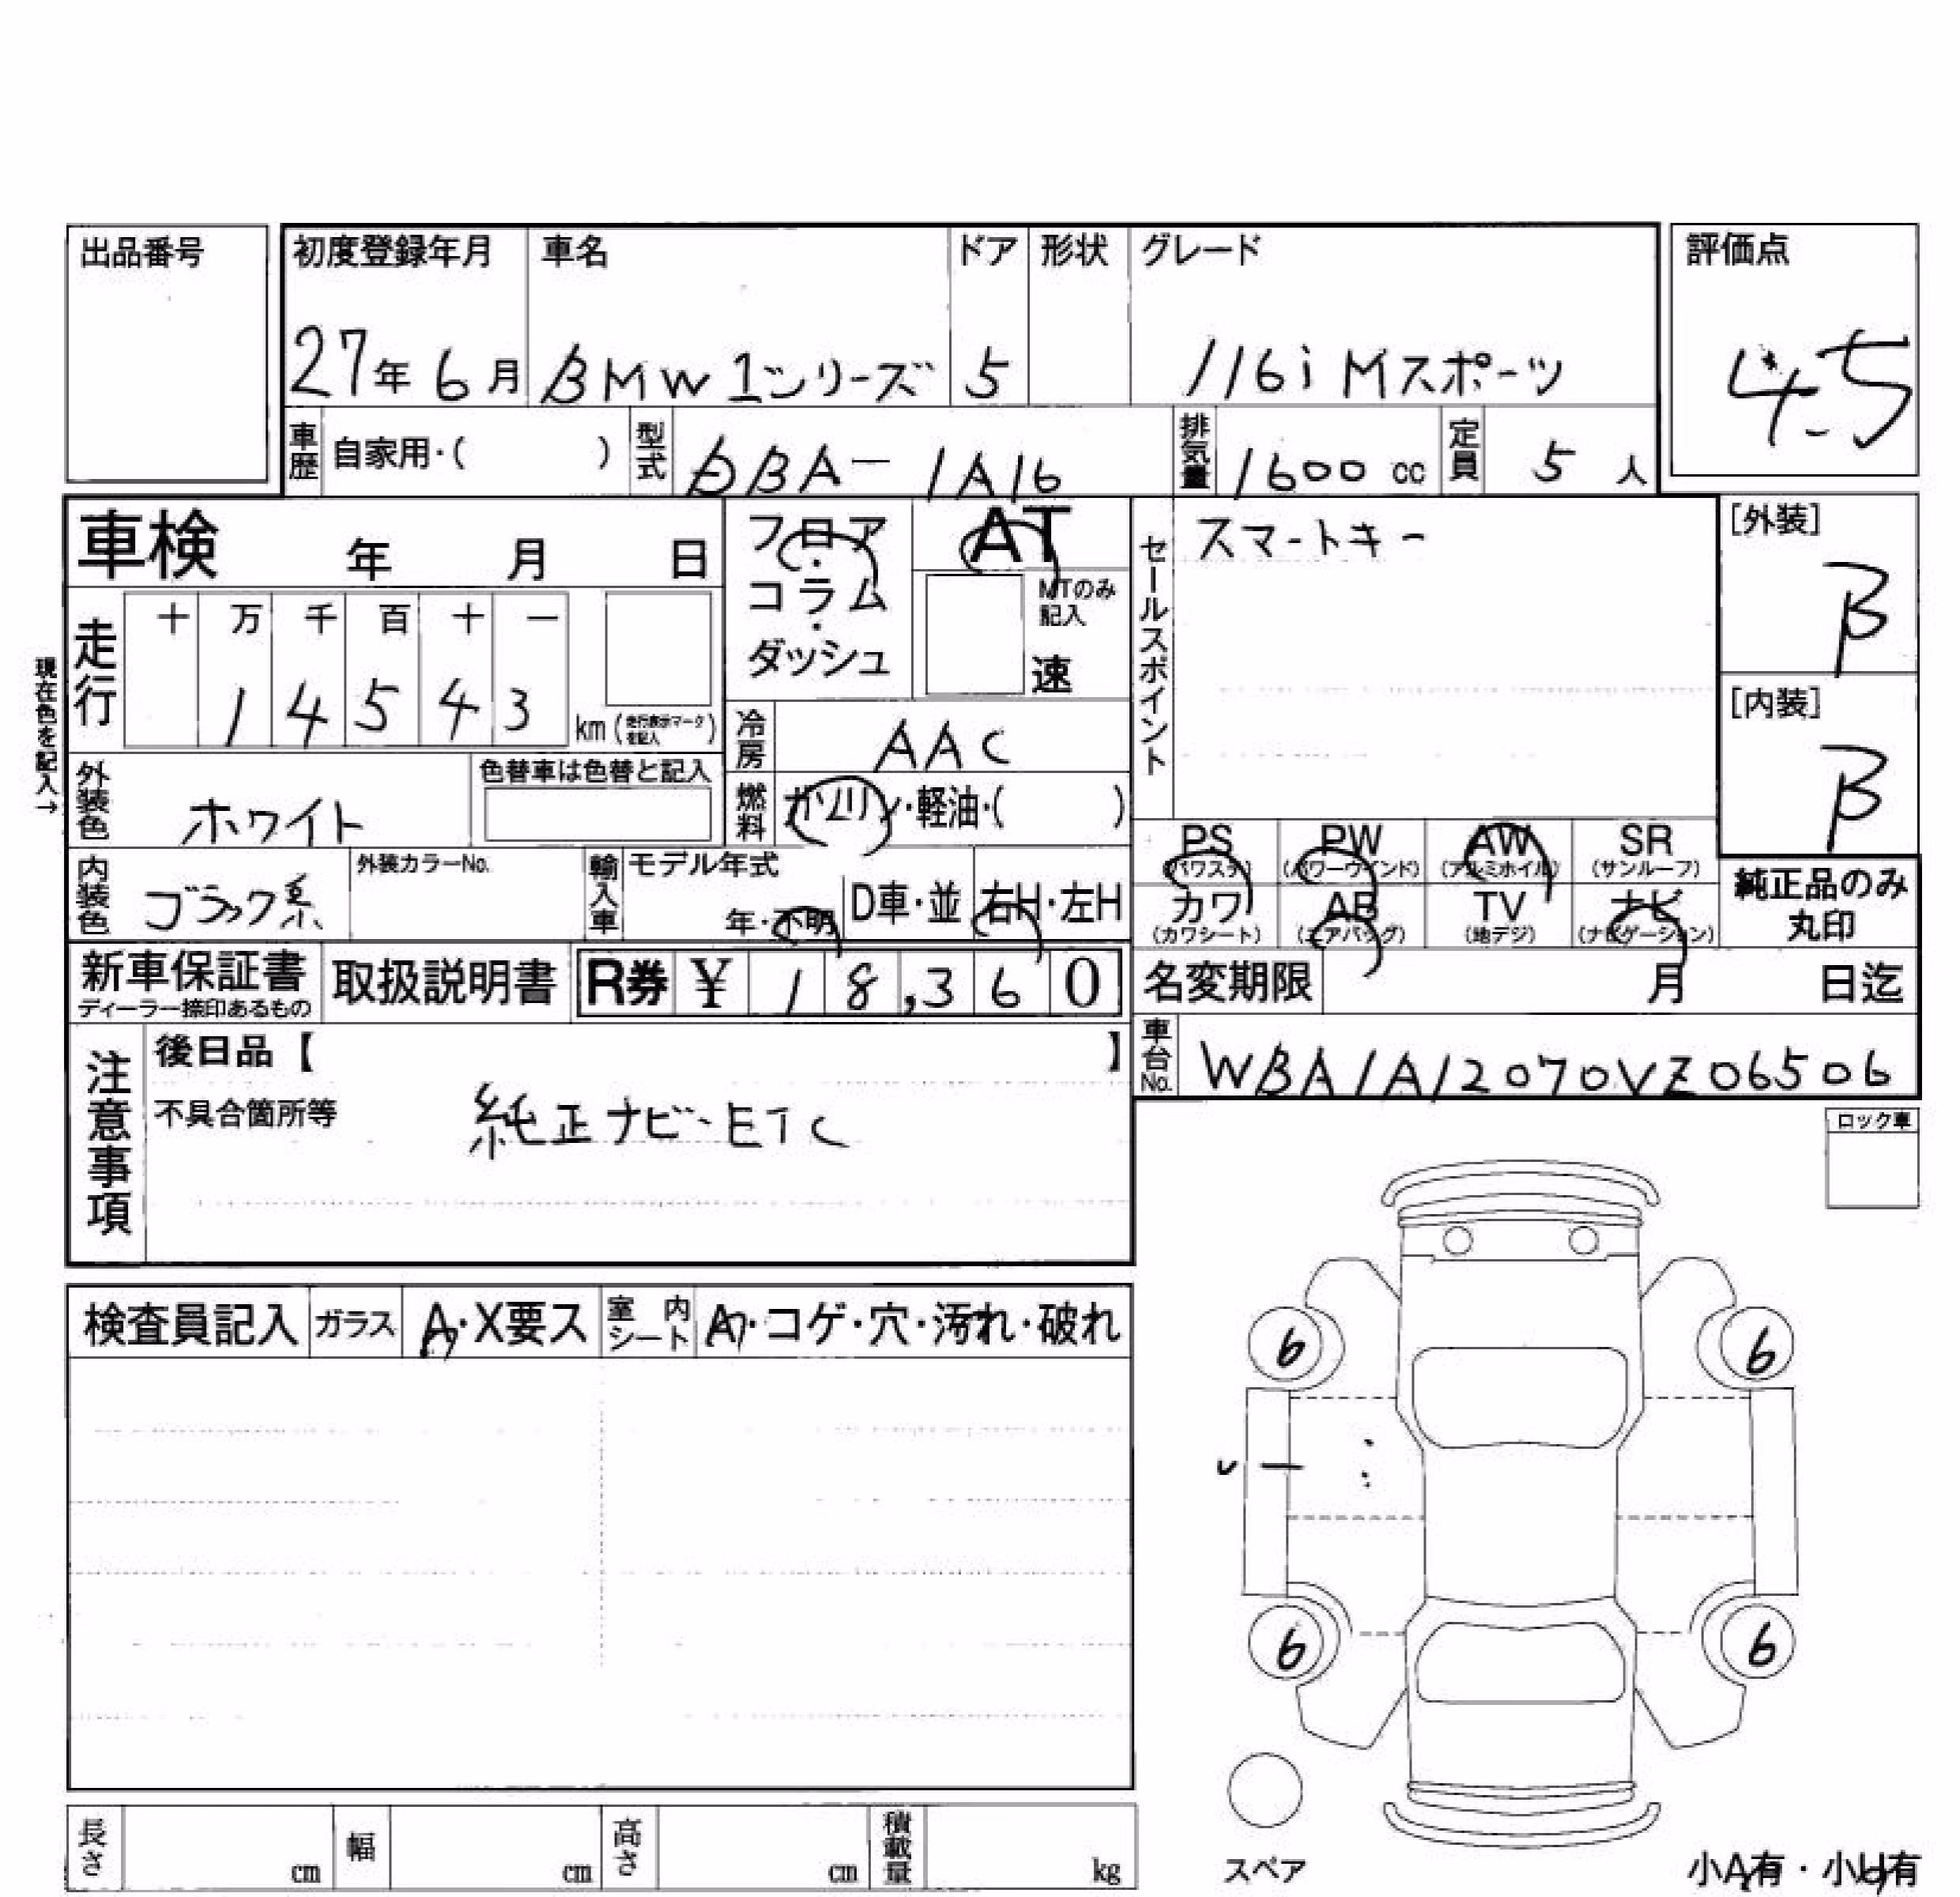 出品番号
初度登録年月 車名 ドア 形状 グレード 評価点
27年6月 BMW 1シリーズ 5 116i Mスポーツ 4.5
車歴 自家用・( ) 型式 DBA-1A16 排気量 1600 cc 定員 5 人
車検 年 月 日
フロア・コラム・ダッシュ
AT
MTのみ記入
速
セールスポイント
スマートキー
[外装]
B
[内装]
B
現在色を記入→
走行 十 万 千 百 十 一
1 4 5 4 3 km (走行表示マークを記入)
冷房 AAC
外装色 ホワイト 色替車は色替と記入
燃料 ガソリン・軽油・( )
PS (パワステ) PW (パワーウインド) AW (アルミホイル) SR (サンルーフ)
カワ (カワシート) AB (エアバッグ) TV (地デジ) ナビ (ナビゲーション)
純正品のみ丸印
内装色 ブラック系 外装カラーNo. 輸入車 モデル年式 年・不明 D車・並 右H・左H
新車保証書 ディーラー捺印あるもの 取扱説明書 R券 ¥ 18,360
名変期限 月 日迄
車台No. WBA1A12070VZ06506
注意事項
後日品【 】
不具合箇所等 純正ナビ・ETC
ロック車
検査員記入 ガラス A・X要ス 室内シート A・コゲ・穴・汚れ・破れ
6 6
6 6
スペア
長さ cm 幅 cm 高さ cm 積載量 kg
小A有・小U有